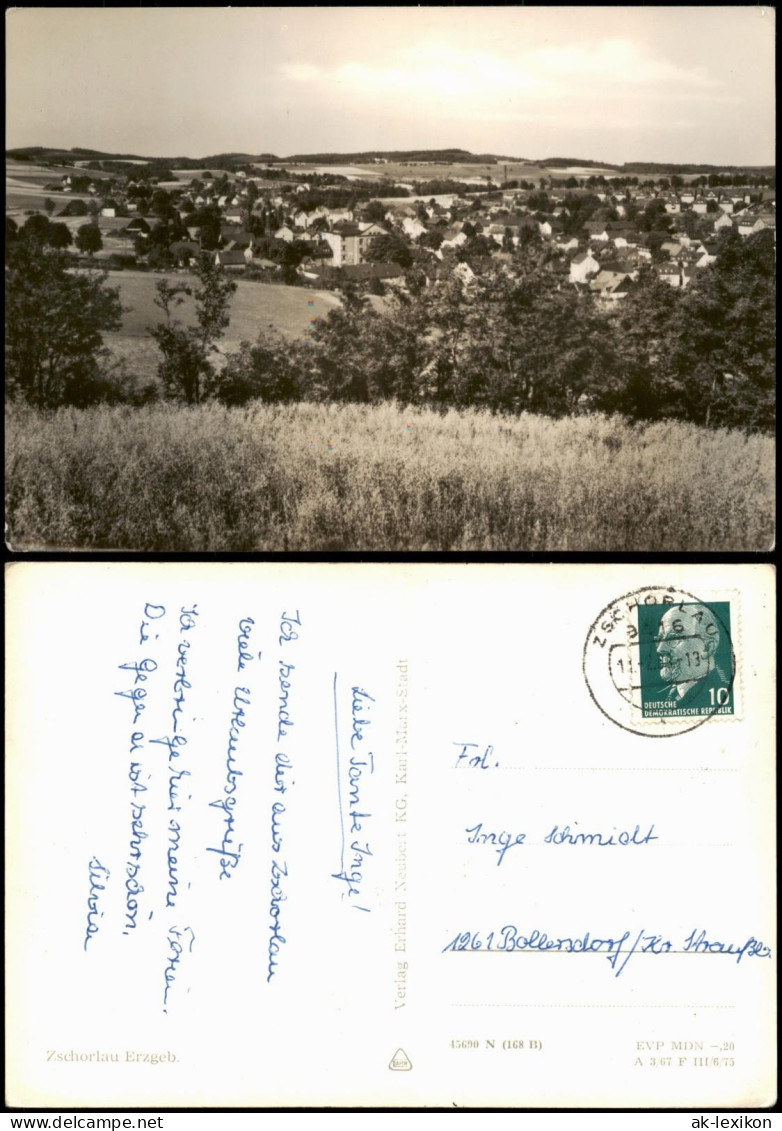 Liebe Tante Inge!
Ich sende dir aus Zschorlau
viele Urlaubsgrüße
Ich verbringe hier meine Ferien.
Die Gegend ist sehr schön.
Silvia
Verlag Erhard Neubert KG, Karl-Marx-Stadt
ZSCHORLAU
10
DEUTSCHE
DEMOKRATISCHE REPUBLIK
Frl.
Inge Schmidt
1261 Bollersdorf/Kr. Straußb.
Zschorlau Erzgeb.
45690 N (168 B)
EVP MDN –,20
A 3/67 F III/6/75
ak-lexikon